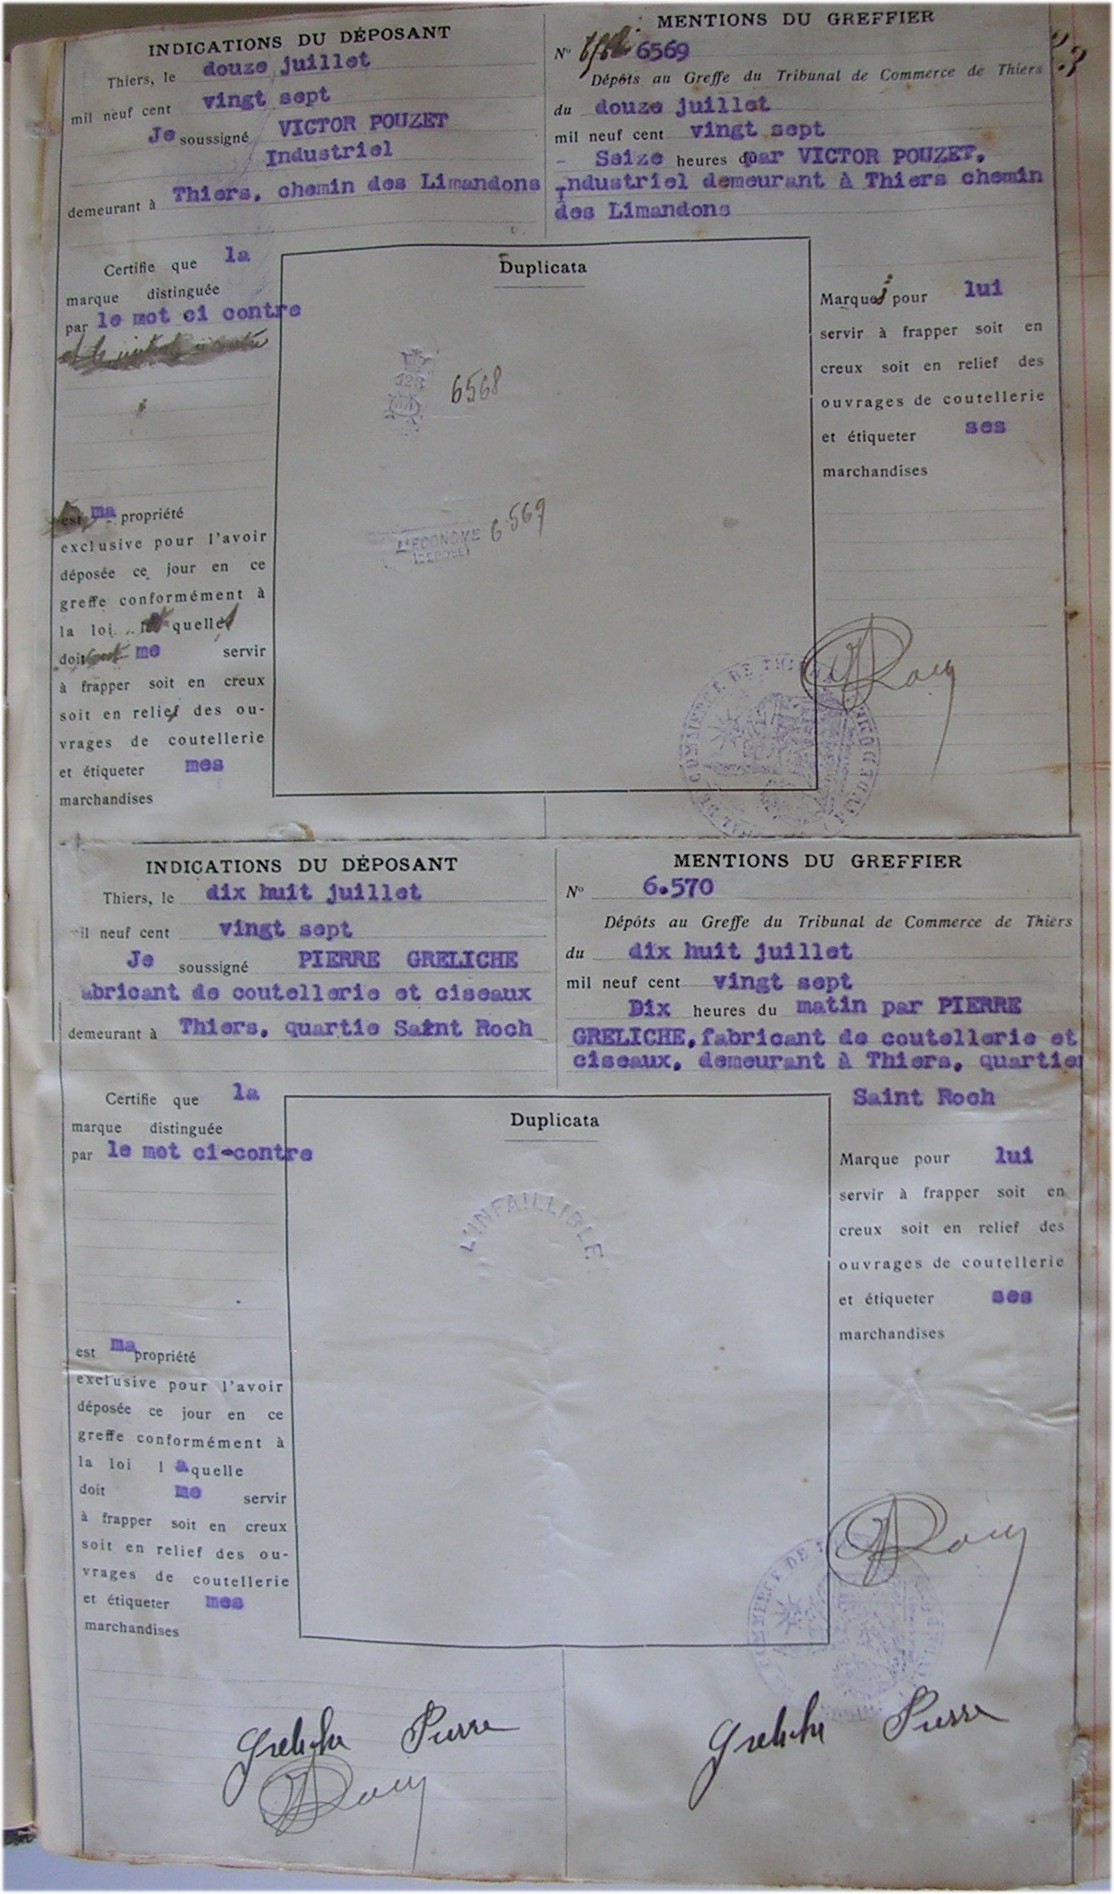 INDICATIONS DU DÉPOSANT
Thiers, le douze juillet
mil neuf cent vingt sept
Je soussigné VICTOR POUZET
Industriel
demeurant à Thiers, chemin des Limandons
MENTIONS DU GREFFIER
N° 6569
Dépôts au Greffe du Tribunal de Commerce de Thiers
du douze juillet
mil neuf cent vingt sept
- Seize heures par VICTOR POUZET,
Industriel demeurant à Thiers chemin
des Limandons
Certifie que la
marque distinguée
par le mot ci contre
est ma propriété
exclusive pour l'avoir
déposée ce jour en ce
greffe conformément à
la loi quelle
doit me servir
à frapper soit en creux
soit en relief des ou-
vrages de coutellerie
et étiqueter mes
marchandises
Duplicata
128
6568
L'ECONOME 6.569
DEPOSE
Marque pour lui
servir à frapper soit en
creux soit en relief des
ouvrages de coutellerie
et étiqueter ses
marchandises
COMMERCE DE THIERS
INDICATIONS DU DÉPOSANT
Thiers, le dix huit juillet
mil neuf cent vingt sept
Je soussigné PIERRE GRELICHE
abricant de coutellerie et ciseaux
demeurant à Thiers, quartie Saint Roch
MENTIONS DU GREFFIER
N° 6.570
Dépôts au Greffe du Tribunal de Commerce de Thiers
du dix huit juillet
mil neuf cent vingt sept
Dix heures du matin par PIERRE
GRELICHE, fabricant de coutellerie et
ciseaux, demeurant à Thiers, quartier
Saint Roch
Certifie que la
marque distinguée
par le mot ci-contre
est ma propriété
exclusive pour l'avoir
déposée ce jour en ce
greffe conformément à
la loi laquelle
doit me servir
à frapper soit en creux
soit en relief des ou-
vrages de coutellerie
et étiqueter mes
marchandises
Duplicata
L'INFAILLIBLE
Marque pour lui
servir à frapper soit en
creux soit en relief des
ouvrages de coutellerie
et étiqueter ses
marchandises
COMMERCE DE
Greliche Pierre
Greliche Pierre